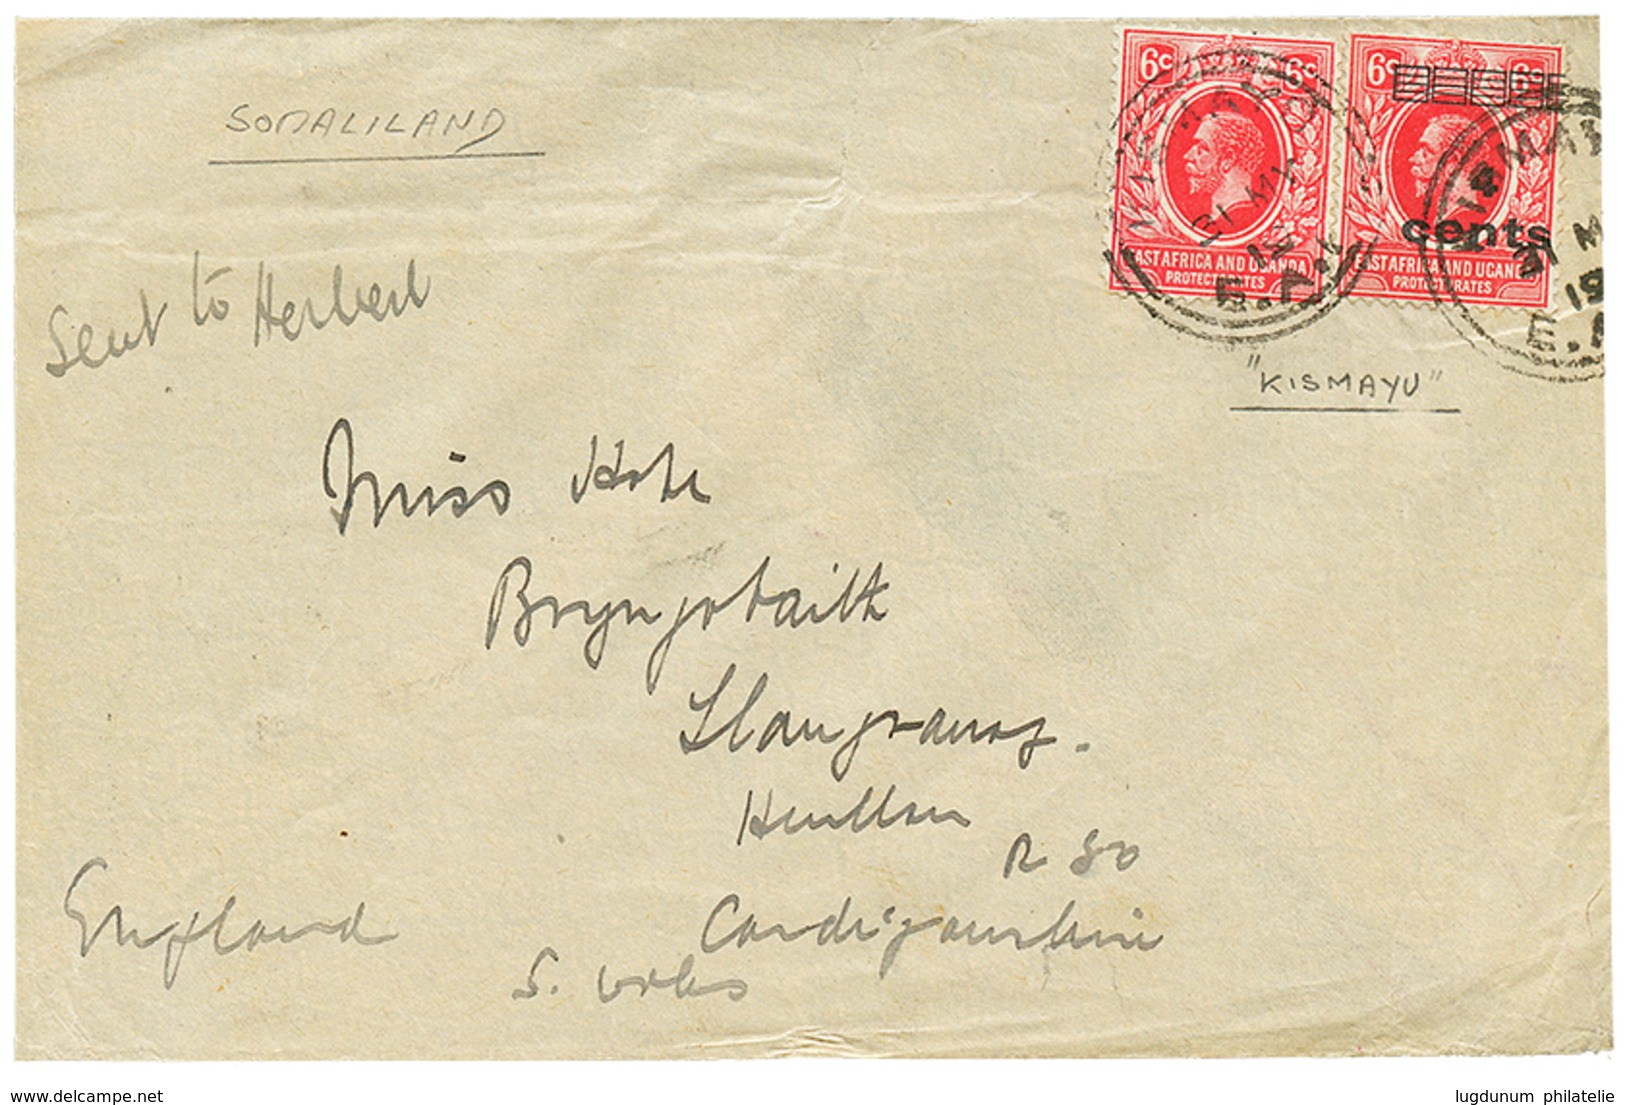 SOMALILAND
6c 6c
EAST AFRICA AND UGANDA
PROTECTORATES
6c 6c
cents
EAST AFRICA AND UGANDA
PROTECTORATES
31 MY
19
E.A.
31 M
19
E.A
"KISMAYU"
Sent to Herbert
Miss
Llangranog.
Henllan
R SO
Cardiganshire
England
S. Wales
www.delcampe.net
lugdunum philatelie